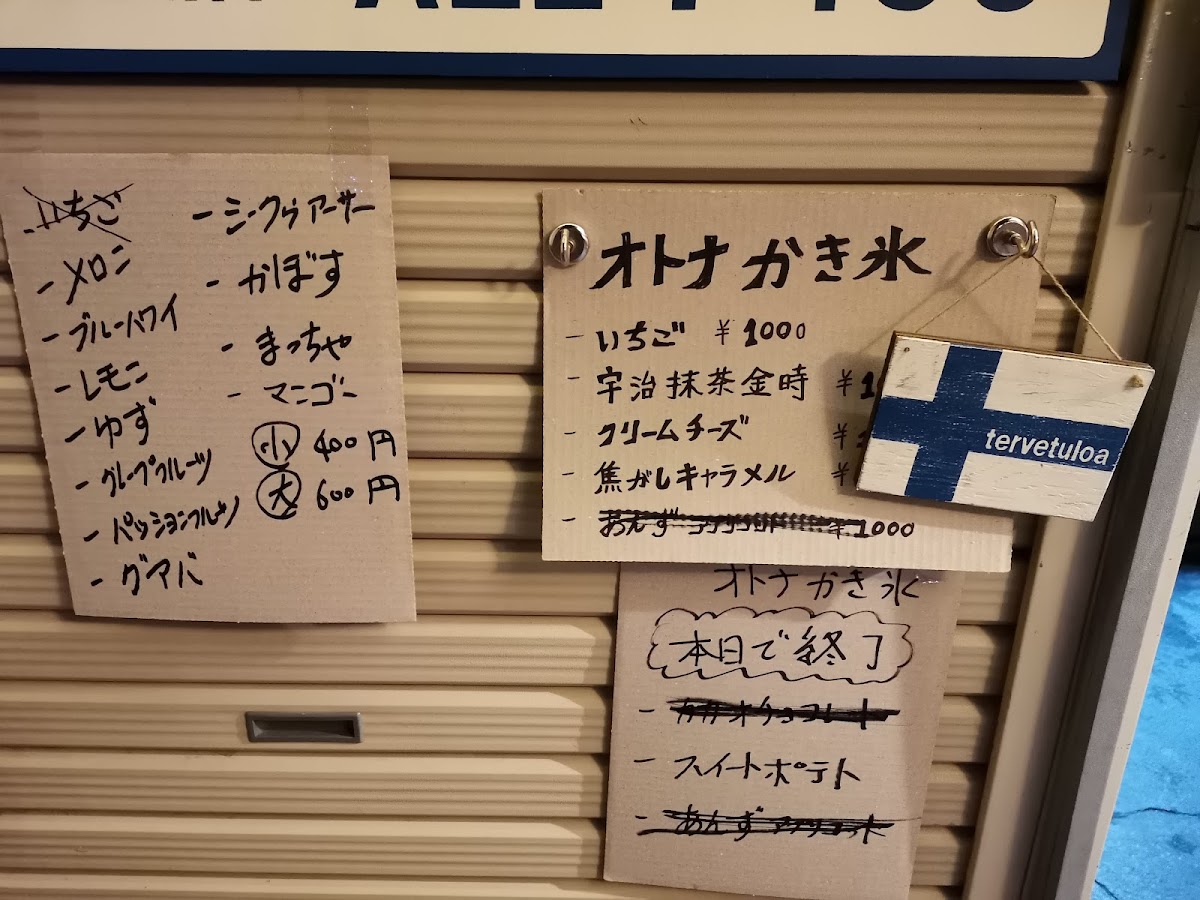 いちご
- メロン
- ブルーハワイ
- レモン
- ゆず
- グレープフルーツ
- パッションフルーツ
- グアバ
- シークゥアーサー
- かぼす
- まっちゃ
- マンゴー
小 400円
大 600円
オトナかき氷
- いちご ¥1000
- 宇治抹茶金時 ¥1
- クリームチーズ ¥
- 焦がしキャラメル ¥
- あんず アプリコット ¥1000
tervetuloa
オトナかき氷
本日で終了
- カカオチョコレート
- スイートポテト
- あんずアプリコット